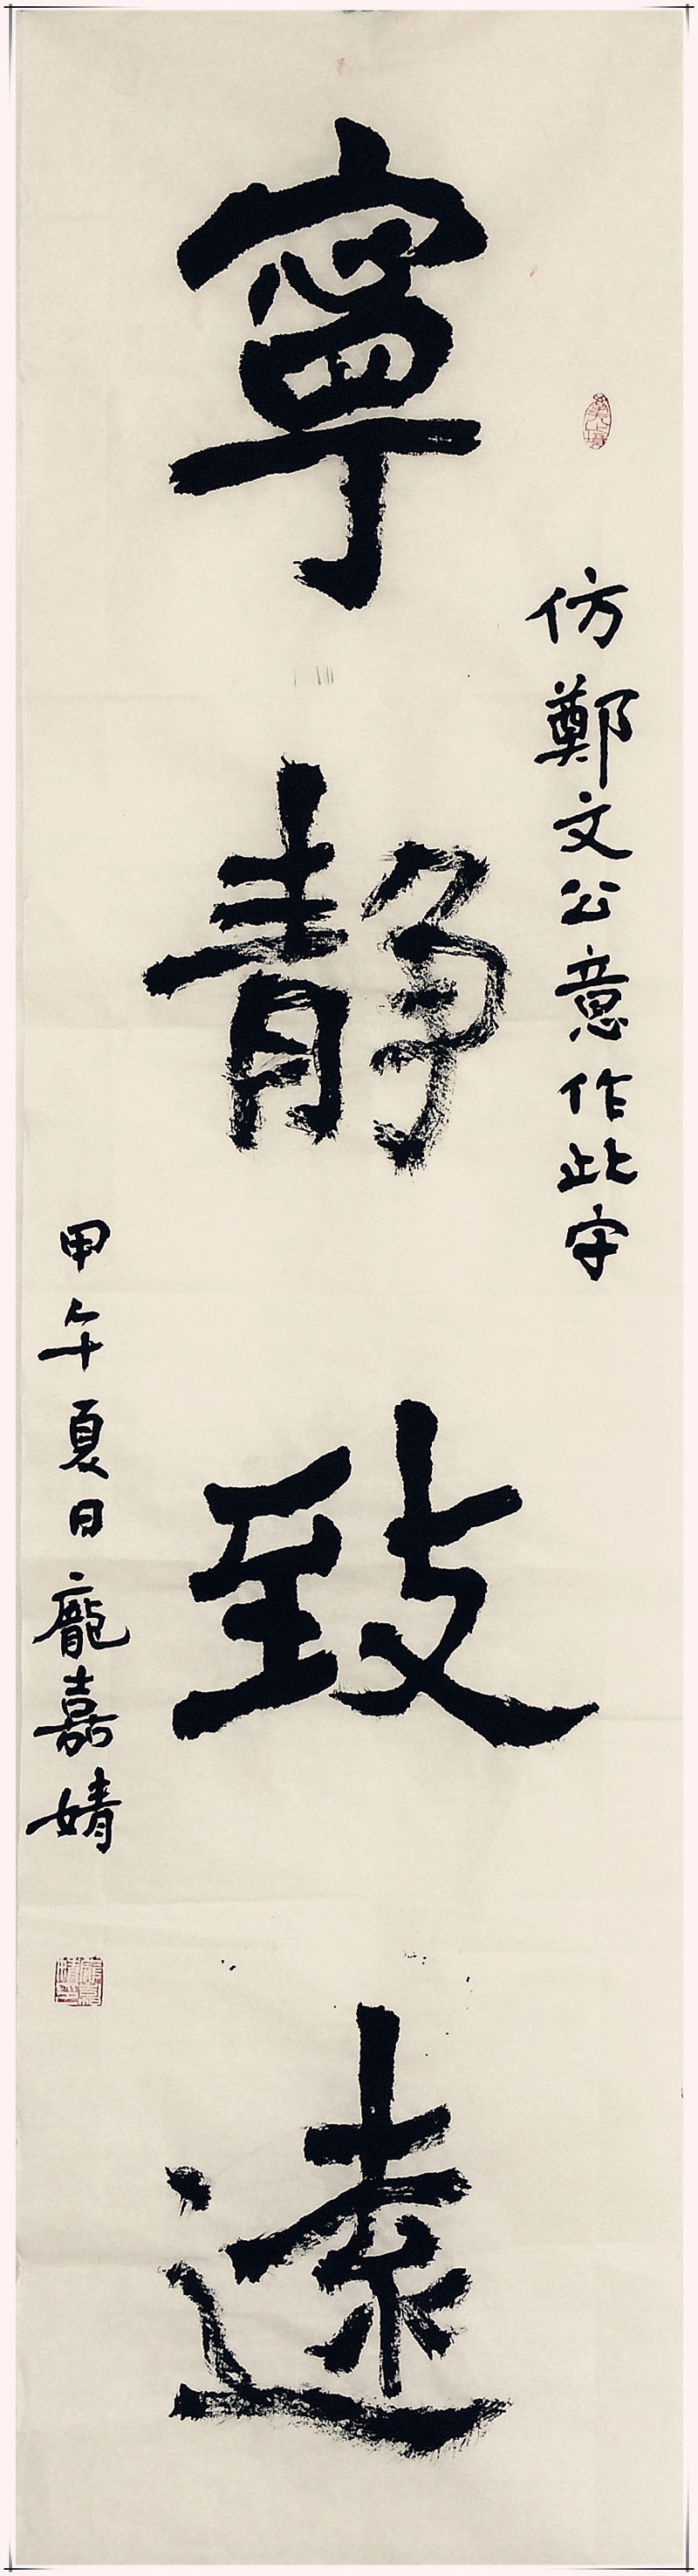 仿鄭文公意作此字
寧靜致遠
甲午夏日龐嘉婧